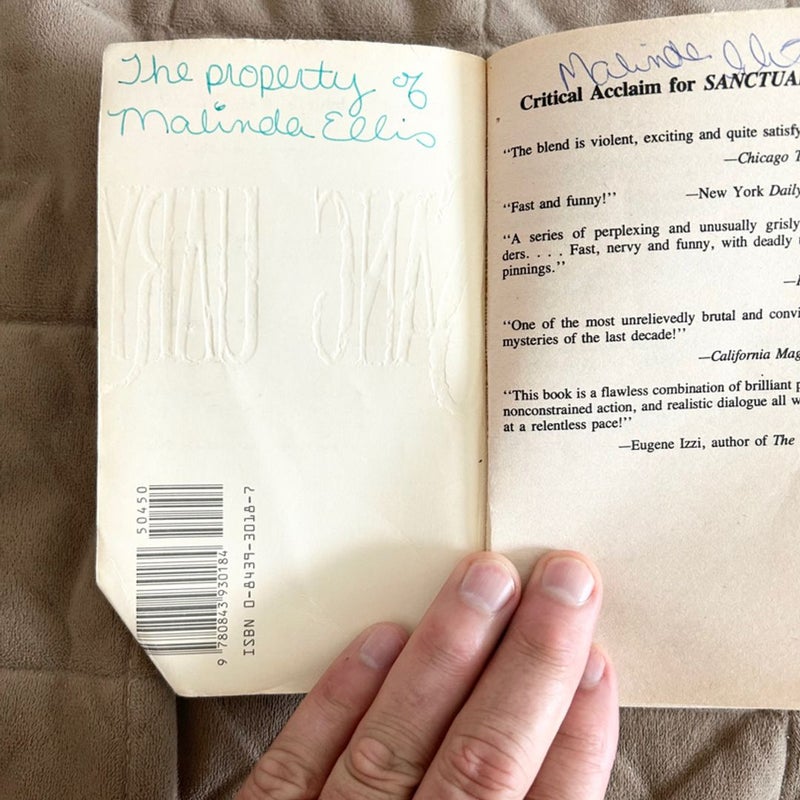 The property of
Malinda Ellis
50450
9 780843 930184
ISBN 0-8439-3018-7
Malinda
Critical Acclaim for SANCTUA
“The blend is violent, exciting and quite satisfy
—Chicago T
“Fast and funny!” —New York Daily
“A series of perplexing and unusually grisly
ders. . . . Fast, nervy and funny, with deadly
pinnings.”
“One of the most unrelievedly brutal and convi
mysteries of the last decade!”
—California Mag
“This book is a flawless combination of brilliant p
nonconstrained action, and realistic dialogue all w
at a relentless pace!”
—Eugene Izzi, author of The